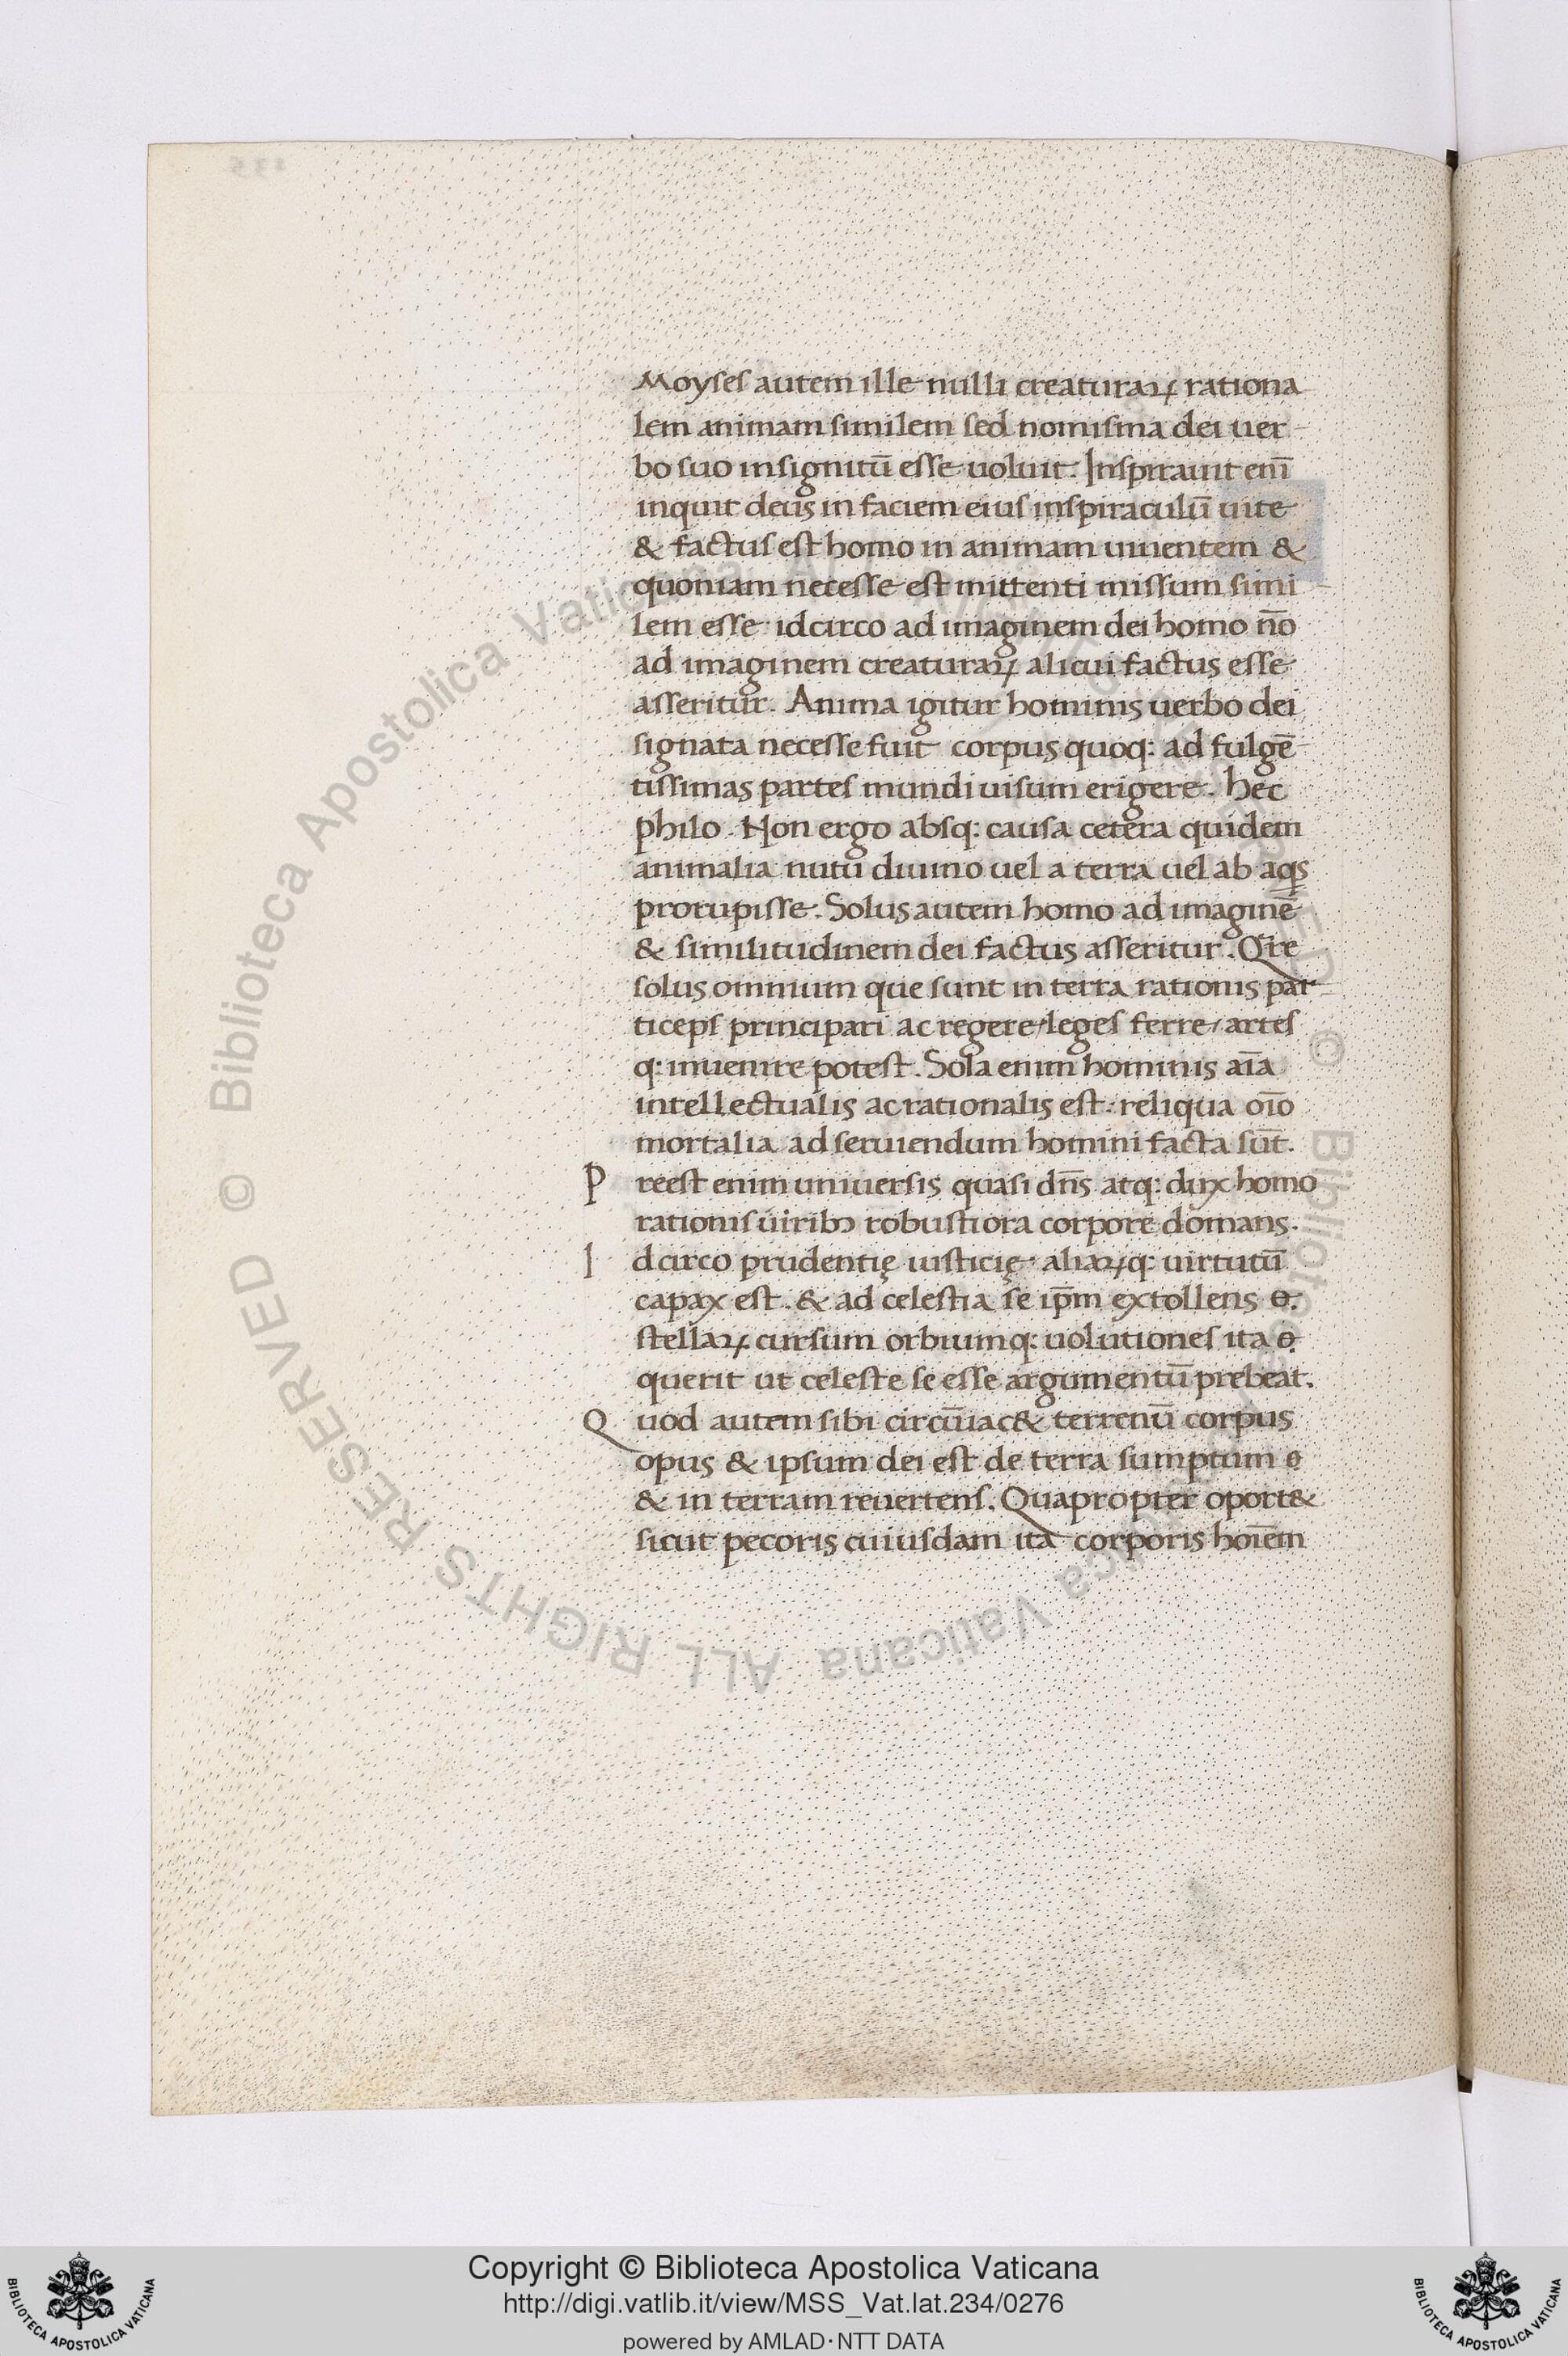 Moyses autem ille nulli creaturaꝝ rationa
lem animam similem sed nomisma dei uer
bo suo insignitū esse uoluit. Inspirauit em̄
inquit deus in faciem eius inspiraculū uite
& factus est homo in animam uiuentem &
quoniam necesse est mittenti missum simi
lem esse idcirco ad imaginem dei homo nō
ad imaginem creaturaꝝ alicui factus esse
asseritur. Anima igitur hominis uerbo dei
signata necesse fuit corpus quoq: ad fulgē
tissimas partes mundi uisum erigere. hec
philo. Non ergo absq: causa cetera quidem
animalia nutu diuino uel a terra uel ab aq̄s
prorupisse. Solus autem homo ad imaginē
& similitudinem dei factus asseritur. Qre
solus omnium que sunt in terra rationis par
ticeps principari ac regere/leges ferre/artes
q: inuenire potest. Sola enim hominis aīa
intellectualis ac rationalis est: reliqua oīo
mortalia ad seruiendum homini facta sūt.
Preest enim uniuersis quasi dn̄s atq: dux homo
rationis uiribꝫ robustiora corpore domans.
Idcirco prudentię iusticię aliaꝝq: uirtutū
capax est. & ad celestia se ip̄m extollens ꝋ.
stellaꝝ cursum orbiumq: uolutiones ita ꝋ
querit ut celeste se esse argumentū prebeat.
Quod autem sibi circūiac& terrenū corpus
opus & ipsum dei est de terra sumptum ꝋ
& in terram reuertens. Quapropter oport&
sicut pecoris cuiusdam ita corporis hoīem
© Biblioteca Apostolica Vaticana ALL RIGHTS RESERVED
© Biblioteca Apostolica Vaticana ALL RIGHTS RESERVED
Copyright © Biblioteca Apostolica Vaticana
http://digi.vatlib.it/view/MSS_Vat.lat.234/0276
powered by AMLAD·NTT DATA
BIBLIOTECA APOSTOLICA VATICANA
BIBLIOTECA APOSTOLICA VATICANA